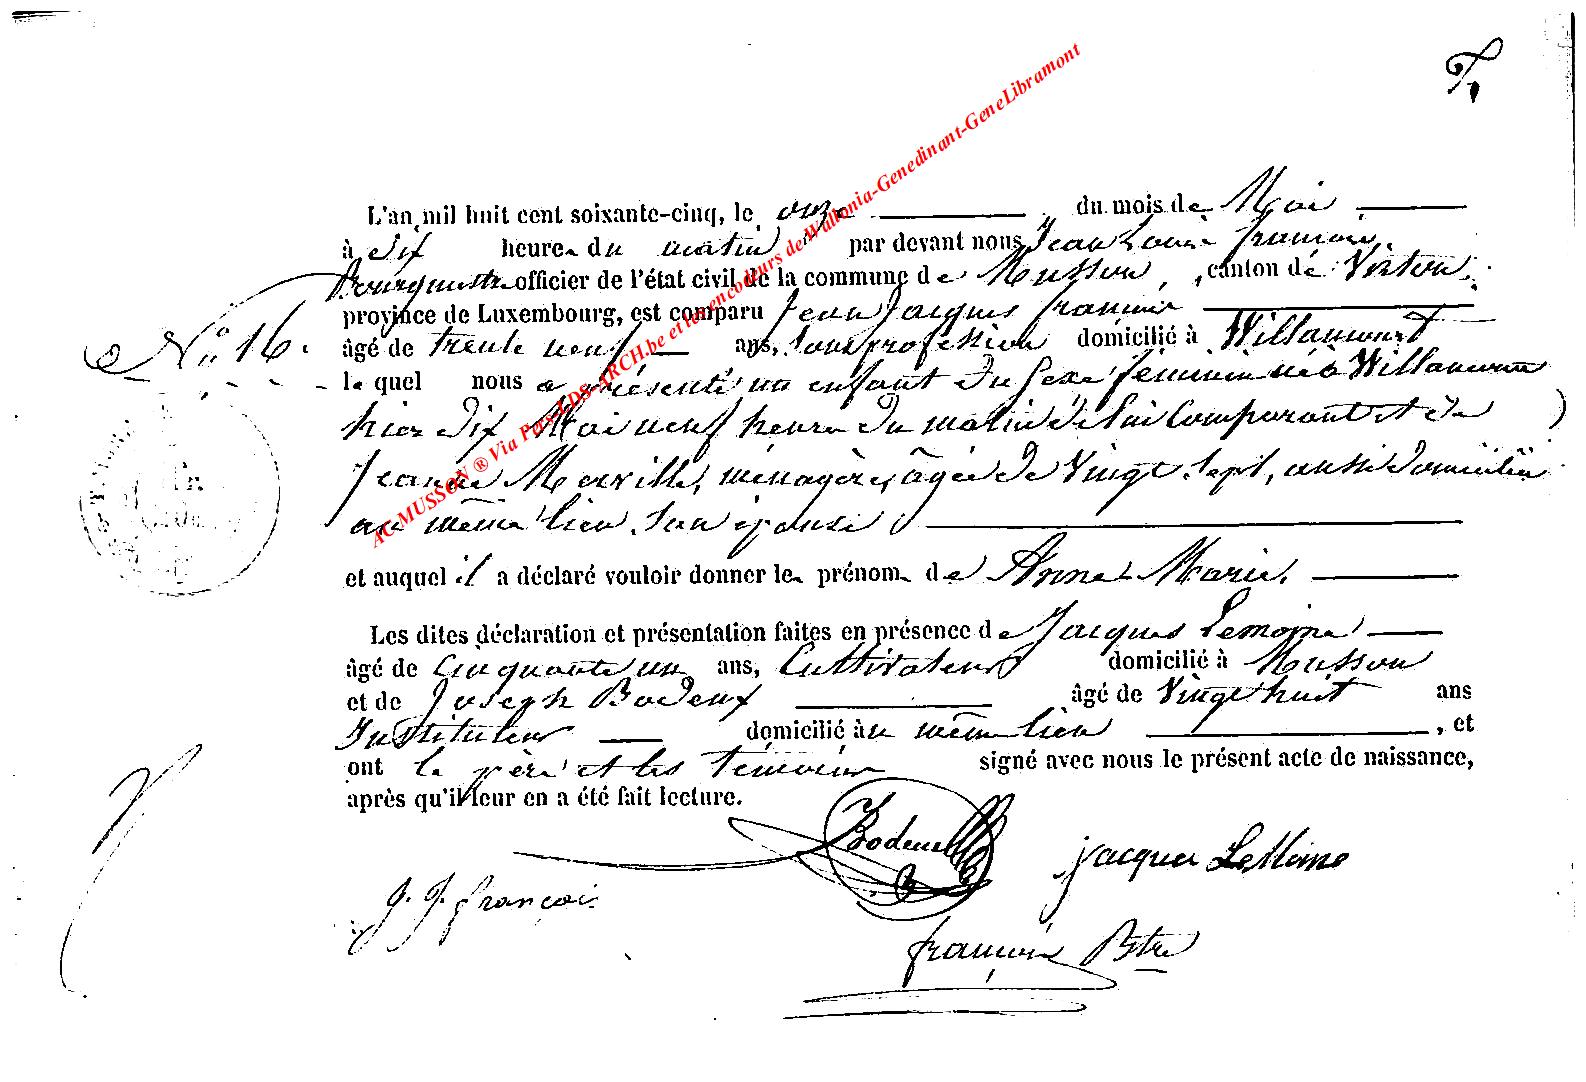 L'an mil huit cent soixante-cinq, le onze du mois de Mai
à dix heures du matin par devant nous Jean Louis françois
Bourgmestre officier de l'état civil de la commune de Musson, canton de Virton,
province de Luxembourg, est comparu Jean Jacques françois
N° 16.
âgé de trente neuf ans, sans profession domicilié à Willancourt
le quel nous a présenté un enfant du sexe féminin né à Willancourt
hier dix Mai neuf heures du matin de lui Comparant et de
Jeanne Merville, ménagère, âgée de Vingt sept, aussi domiciliée
au même lieu, son épouse
et auquel il a déclaré vouloir donner les prénoms de Anne Marie.
Les dites déclaration et présentation faites en présence de Jacques Lemoine
âgé de Cinquante un ans, Cultivateur domicilié à Musson
et de Joseph Bodeux âgé de Vingt huit ans
Instituteur domicilié au même lieu, et
ont le père et les témoins signé avec nous le présent acte de naissance,
après qu'il leur en a été fait lecture.
Bodeux
jacques LeMoine
J. J. françois
françois Btre
AC-MUSSON ® Via Pus-LDS-ARCH.be et les encodeurs de Wallonia-Genedinant-GeneLibramont